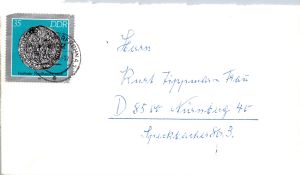 35 DDR
Herrn
Kurt Zippmann - Frau
D 8500 Nürnberg 40
Speckbacherstr. 3.